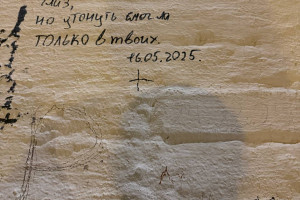 глаз,
но утонуть смогла
ТОЛЬКО в твоих.
16.05.2025.